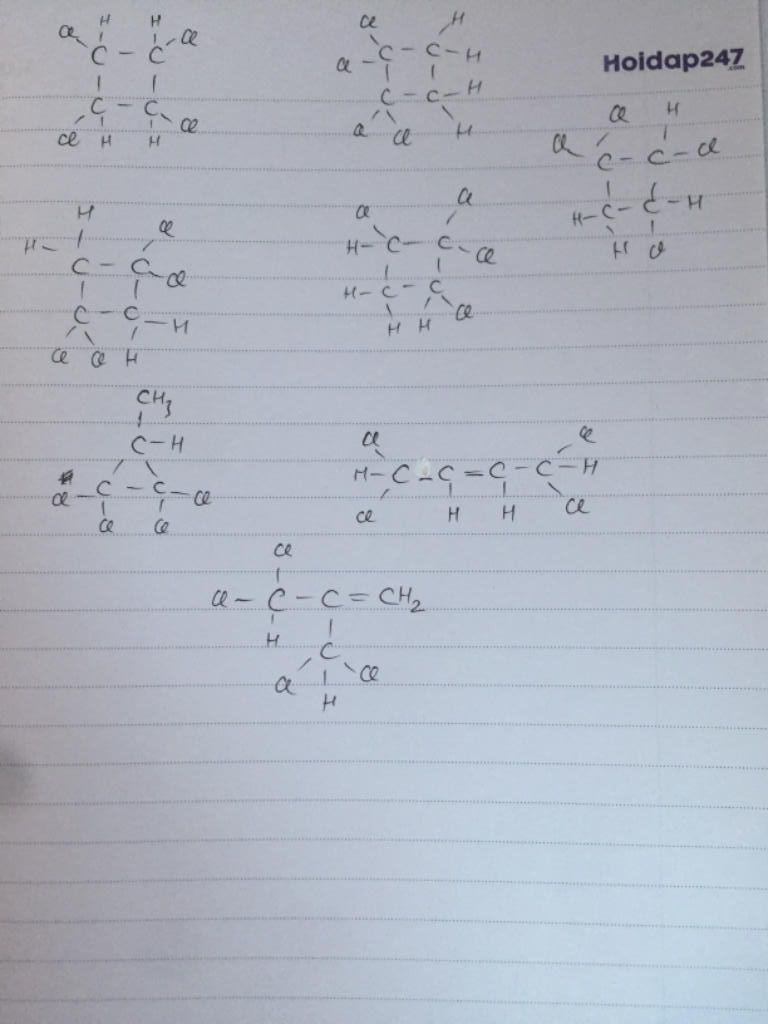 H H Cl H
Cl C - C Cl Cl - C - C - H
Hoidap247.com
C - C C - C - H
Cl H H Cl Cl Cl H
Cl H
Cl C - C - Cl
H - C - C - H
H Cl
H Cl Cl Cl
H - C - C Cl H - C - C Cl
C - C - H H - C - C Cl
Cl Cl H H H
CH3
C - H
Cl - C - C - Cl
Cl Cl
Cl Cl
H - C - C = C - C - H
Cl H H Cl
Cl
Cl - C - C = CH2
H C
Cl H Cl